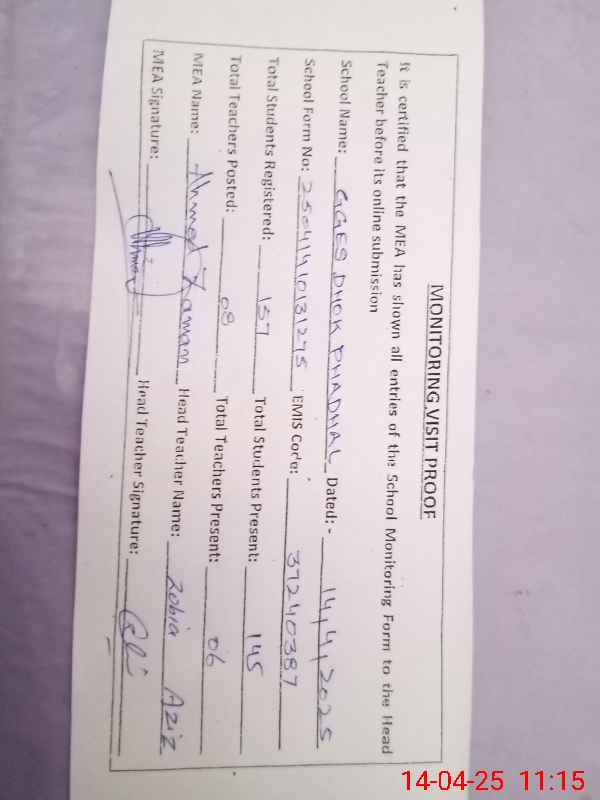 MONITORING VISIT PROOF
It is certified that the MEA has shown all entries of the School Monitoring Form to the Head
Teacher before its online submission
School Name: GGES DHOK PHADHAL Dated: - 14,4,2025
School Form No: 25041410131275 EMIS Code: 37240387
Total Students Registered: 157 Total Students Present: 145
Total Teachers Posted: 08 Total Teachers Present: 06
MEA Name: Ahmed Zaman Head Teacher Name: Zobia Aziz
MEA Signature: Head Teacher Signature:
14-04-25 11:15